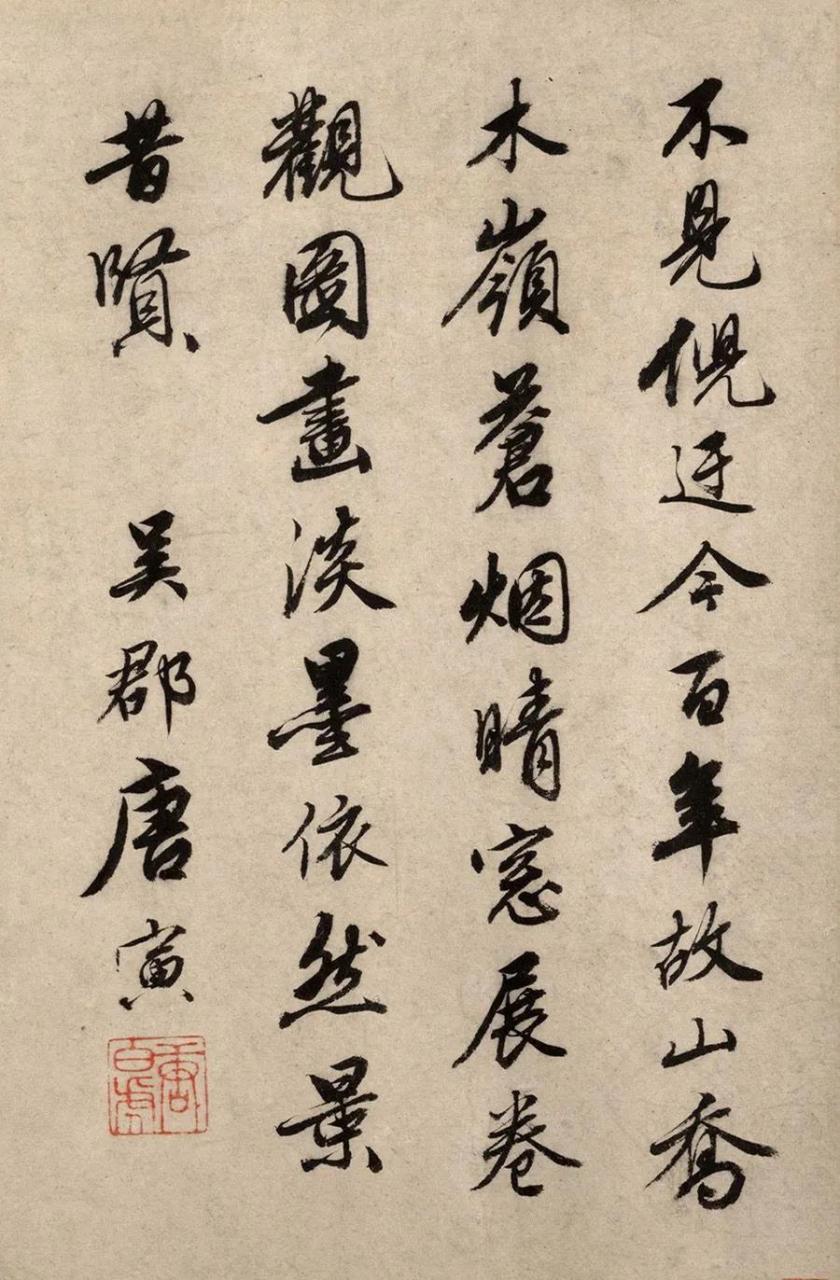 不見倪迂今百年故山喬
木嶺蒼烟晴窓展卷
觀圖畫淡墨依然景
昔賢　吳郡唐寅